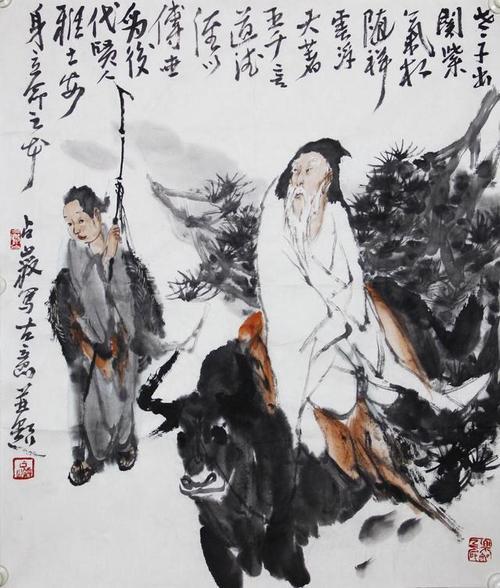 老子出
関紫
氣
随祥
雲浮
大著
五千言
道德
以
傳世
為後
代賢人
雅士安
身立命之本
占巖写古意並題